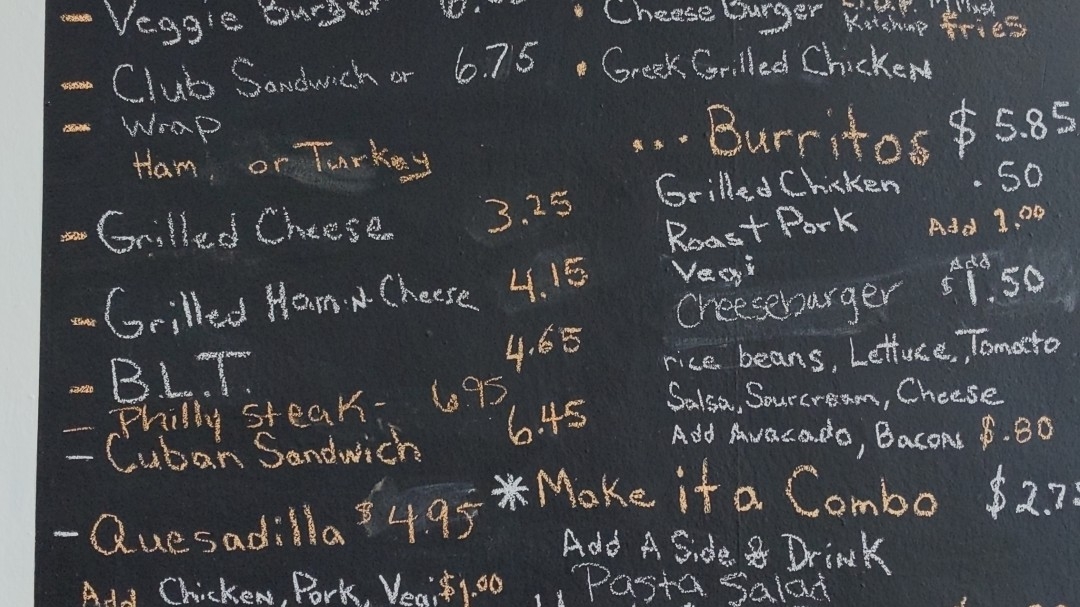 - Veggie Burger
- Club Sandwich or 6.75
- Wrap
Ham or Turkey
- Grilled Cheese 3.25
- Grilled Ham N Cheese 4.15
- B.L.T. 4.65
- Philly Steak - 6.95
- Cuban Sandwich 6.45
- Quesadilla $4.95
Add Chicken, Pork, Vegi $1.00
• Cheese Burger Ketchup fries
• Greek Grilled Chicken
... Burritos $5.85
Grilled Chicken .50
Roast Pork Add 1.00
Vegi
Cheeseburger Add $1.50
rice beans, Lettuce, Tomato
Salsa, Sourcream, Cheese
Add Avacado, Bacon $.80
*Make it a Combo
Add A Side & Drink
Pasta Salad